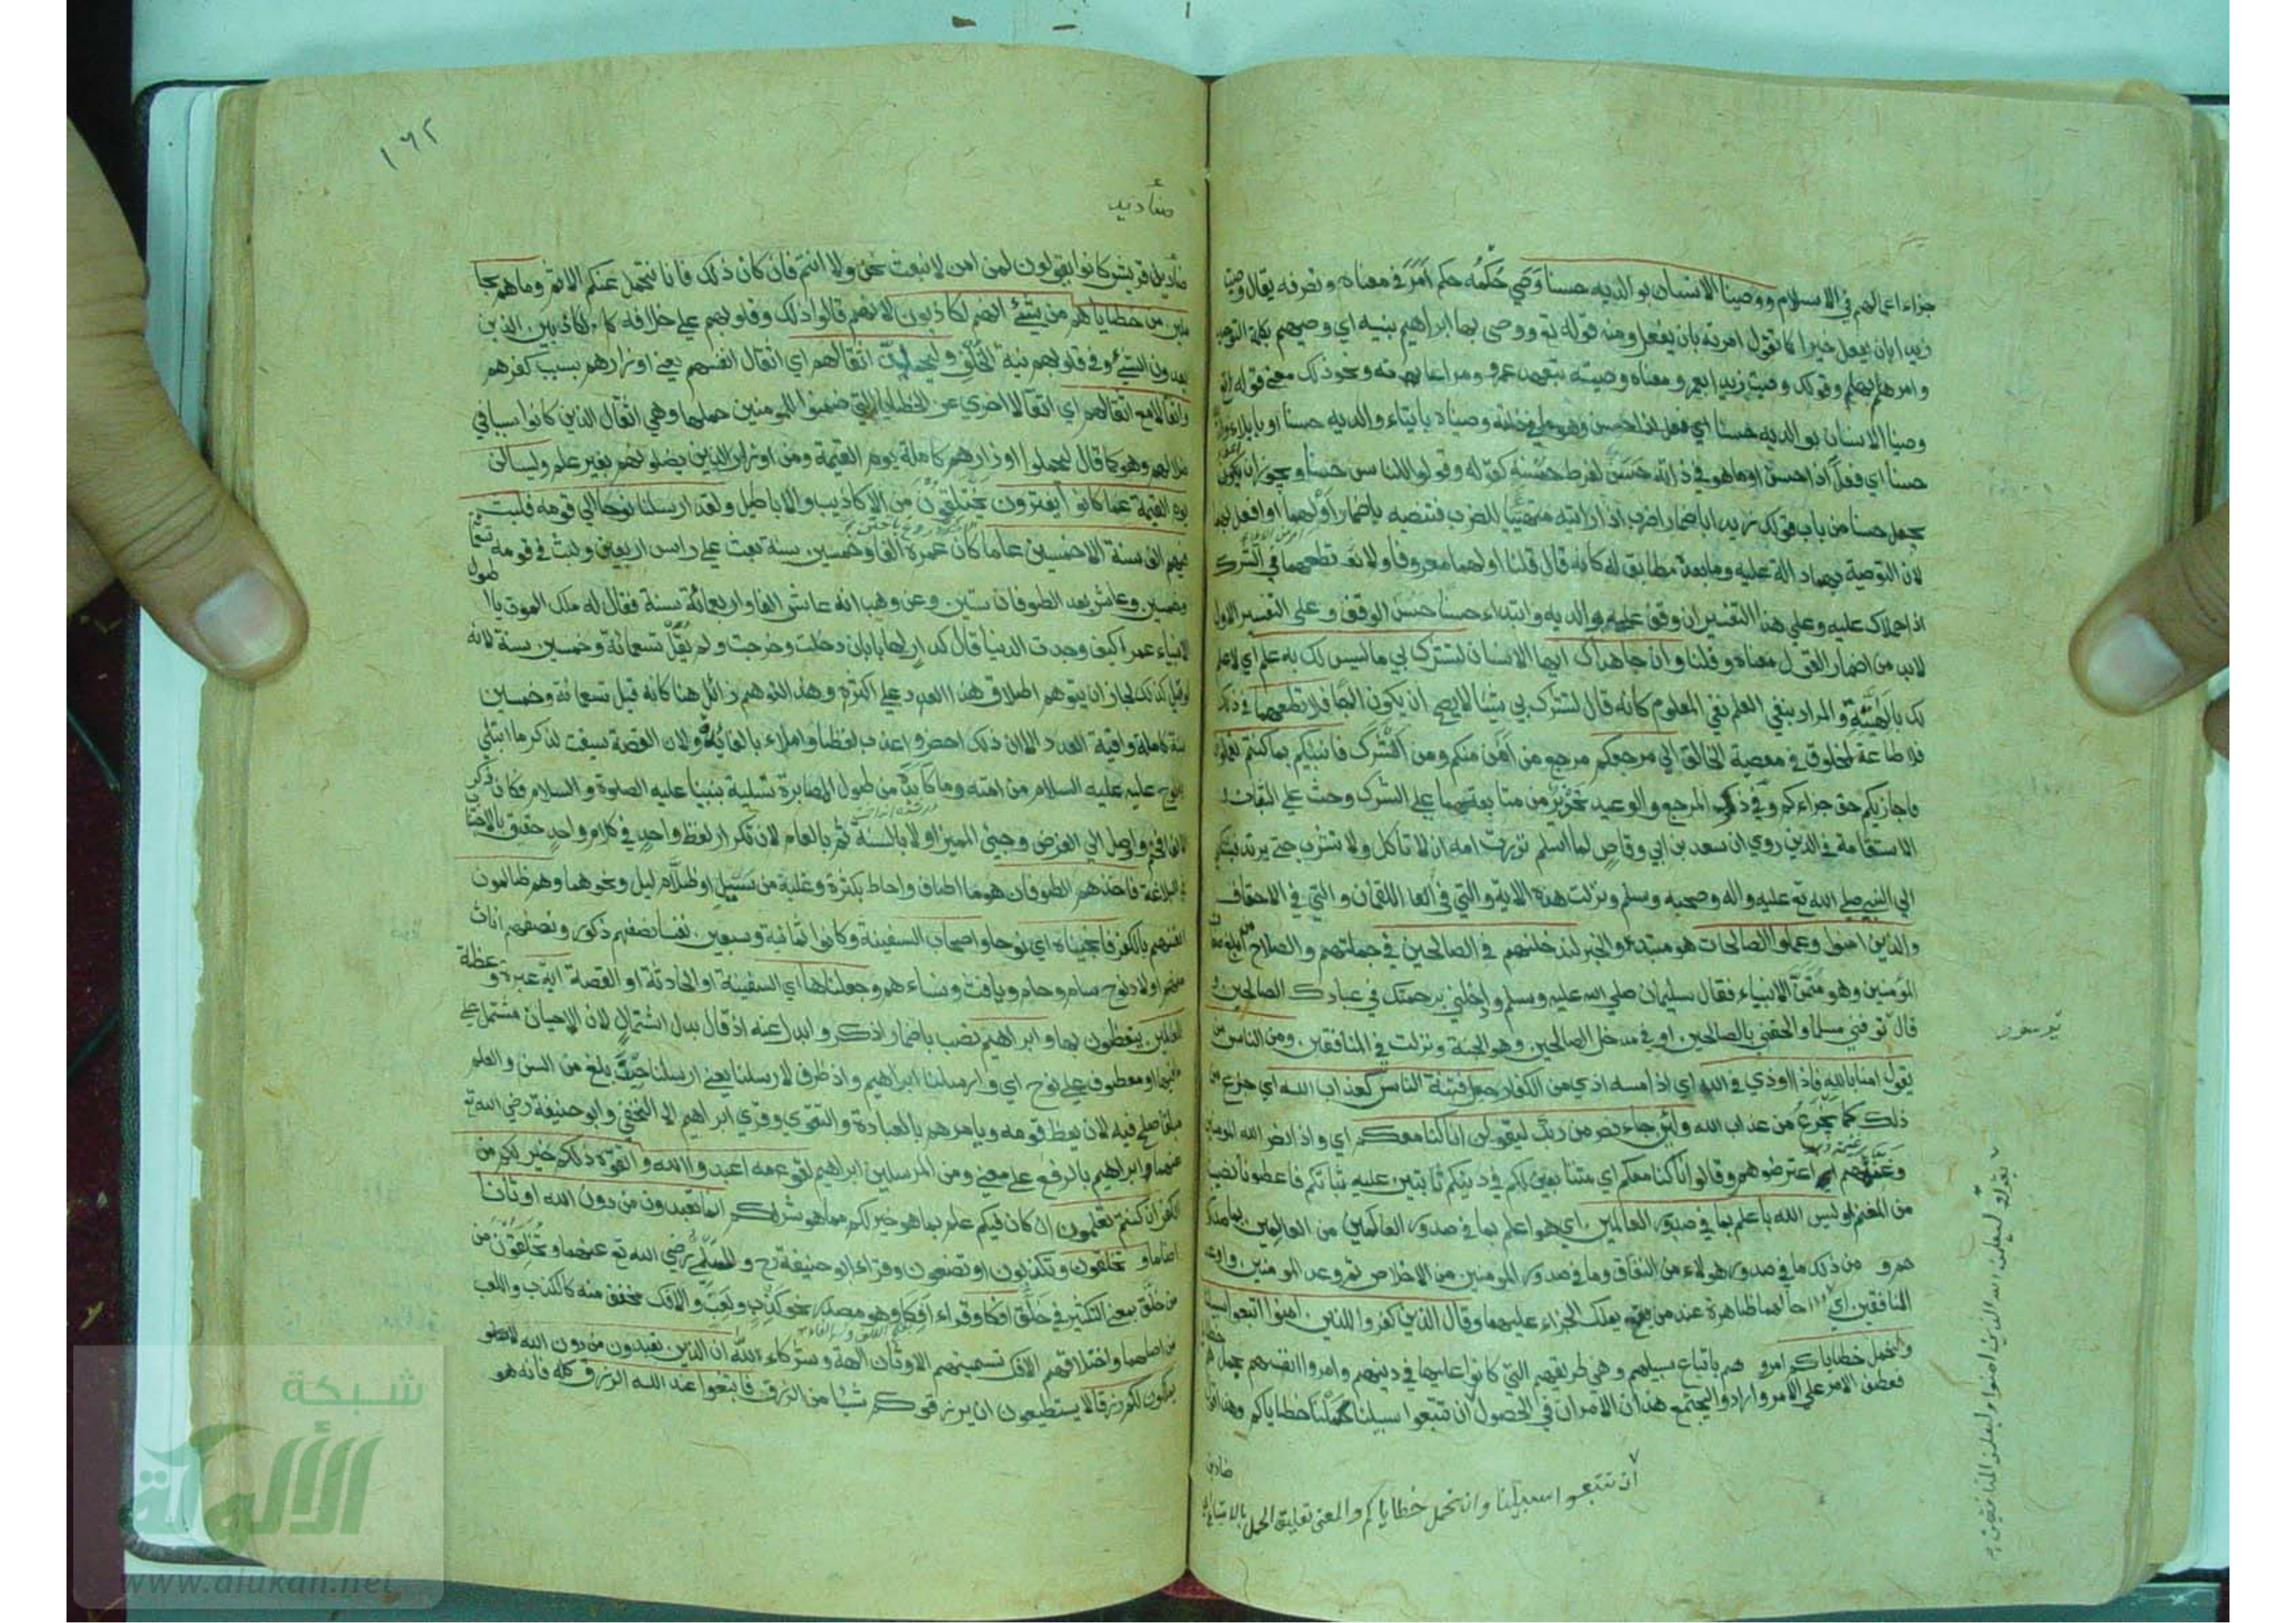 جزاء اعمالهم في الاسلام ووصينا الانسان بوالديه حسنا وصي حكمه حكم امر في معناه وتصرفه يقال وصيت
زيدا بان يفعل خيرا كما تقول امرته بان يفعل ومنه قوله تع ووصى بها ابراهيم بنيه اي وصيهم بكلمة التوحيد
وامرهم بها وقولك وصيت زيدا بعمرو معناه وصيته بتعهد عمرو ومراعاته ونحو ذلك معنى قوله
وصينا الانسان بوالديه حسنا اي وصيناه بايتاء والديه حسنا او بايلاء
حسنا اي فعلا ذا حسن او ما هو في ذاته حسن لفرط حسنه كقوله وقولوا للناس حسنا ويجوز ان يكون
يجعل حسنا من باب قولك زيدا باضمار اضرب اذا رايته متهيئا للضرب فتنصبه باضمار اولهما او افعل بهما
لان التوصية بهما دالة عليه وما بعده مطابق له كانه قال قلنا اولهما معروفا ولا تطعهما في الشرك
اذا حملاك عليه وعلى هذا التفسير ان وقف على بوالديه وابتداء حسنا حسن الوقف وعلى التفسير الاول
لابد من اضمار القول معناه وقلنا وان جاهداك ايها الانسان لتشرك بي ما ليس لك به علم اي لا علم
لك بالهيته والمراد بنفي العلم نفي المعلوم كانه قال لتشرك بي شيئا لا يصح ان يكون الها فلا تطعهما في ذلك
فلا طاعة لمخلوق في معصية الخالق الي مرجعكم مرجع من امن منكم ومن اشرك فانبئكم بما كنتم تعملون
فاجازيكم حق جزاءكم وفي ذكر المرجع والوعيد تحذير من متابعتهما على الشرك وحث على الثبات
الاستقامة في الدين روي ان سعد بن ابي وقاص لما اسلم نذرت امه ان لا تاكل ولا تشرب حتى يرتد فشكى
الي النبي صلي الله تع عليه واله وصحبه وسلم ونزلت هذه الاية والتي في اللقمان والتي في الاحقاف
والذين امنوا وعملوا الصالحات هو مبتدء والخبر لندخلنهم في الصالحين في جملتهم والصلاح من ابلغ
المؤمنين وهو متمنى الانبياء فقال سليمان صلي الله عليه وسلم وادخلني برحمتك في عبادك الصالحين
قال توفني مسلما والحقني بالصالحين او في مدخل الصالحين وهو الجنة ونزلت في المنافقين ومن الناس من
يقول امنا بالله فاذا اوذي في الله اي اذا مسه اذي من الكفار جعل فتنة الناس كعذاب الله اي جزع من
ذلك كما يجزع من عذاب الله ولئن جاء نصر من ربك ليقولن انا كنا معكم اي واذا نصر الله المومنين
وغنمهم اعترضوهم وقالوا انا كنا معكم اي متابعين لكم في دينكم ثابتين عليه ثباتكم فاعطونا نصيبنا
من المغنم اوليس الله باعلم بما في صدور العالمين اي هو اعلم بما في صدور العالمين من العالمين بما في
ومن ذلك ما في صدور هولاء من النفاق وما في صدور المومنين من الاخلاص ثم وعد المومنين واوعد
المنافقين حالهما ظاهرة عند من يملك الجزاء عليهما وقال الذين كفروا للذين امنوا اتبعوا سبيلنا
ولنحمل خطاياكم امروهم باتباع سبيلهم وهي طريقهم التي كانوا عليها في دينهم وامروا انفسهم بحمل
فعطف الامر على الامر وارادوا ليجتمع هذان الامران في الحصول ان تتبعوا سبيلنا خطاياكم
ان تتبعوا سبيلنا وان نحمل خطاياكم والمعنى تعليق الحمل بالاتباع
وليعلمن الله الذين امنوا وليعلمن المنافقين
١٦٢
صناديد
قريش كانوا يقولون لمن امن لا نبعث نحن ولا انتم فان كان ذلك فانا نتحمل عنكم الاثم وما هم بحا
ملين من خطاياهم من شيئ انهم لكاذبون لانهم قالوا ذلك وقلوبهم على خلافه كالكاذبين الذين
يعدون الشيئ وفي قلوبهم نية الخلف وليحملن اثقالهم اي اثقال انفسهم يعني اوزارهم بسبب كفرهم
واثقالا مع اثقالهم اي اثقالا اخرى غير الخطايا التي ضمنوا للمومنين حملها وهي اثقال الذين كانوا سببا في
ضلالهم وهو كما قال ليحملوا اوزارهم كاملة يوم القيمة ومن اوزار الذين يضلونهم بغير علم وليسالن
يوم القيمة عما كانوا يفترون يختلقون من الاكاذيب والاباطيل ولقد ارسلنا نوحا الي قومه فلبث
فيهم الف سنة الا خمسين عاما كان عمره الفا وخمسين سنة بعث على راس اربعين ولبث في قومه تسعمائة
وخمسين وعاش بعد الطوفان ستين وعن وهب انه عاش الفا واربعمائة سنة فقال له ملك الموت يا اطول
الانبياء عمرا كيف وجدت الدنيا قال كدار لها بابان دخلت وخرجت ولم يقل تسعمائة وخمسين سنة لانه
لو قيل كذلك لجاز ان يتوهم اطلاق هذا العدد على اكثره وهذا التوهم زائل هنا كانه قيل تسعمائة وخمسين
سنة كاملة وافية العدد الا ان ذلك اخصر واعذب لفظا واملاء بالفائدة ولان القصة سيقت لذكر ما ابتلي
به نوح عليه السلام من امته وما كابده من طول المصابرة تسلية بنبينا عليه الصلوة والسلام فكان ذكر
الالف افخم واوصل الي الغرض وجيئ المميز اولا بالسنة ثم بالعام لان تكرار لفظ واحد في كلام واحد حقيق بالاجتناب
في البلاغة فاخذهم الطوفان هو ما اطاف واحاط بكثرة وغلبة من سيل او ظلام ليل ونحوهما وهم ظالمون
انفسهم بالكفر فانجيناه اي نوحا واصحاب السفينة وكانوا ثمانية وسبعين نفسا نصفهم ذكور ونصفهم اناث
منهم اولاد نوح سام وحام ويافث ونساءهم وجعلناها اي السفينة او الحادثة او القصة اية عبرة وعظة
للعلمين يتعظون بها وابراهيم نصب باضمار اذكر وابدل عنه اذ قال بدل اشتمال لان الاحيان مشتمل على
ما فيها او معطوف على نوح اي وارسلنا ابراهيم واذ ظرف لارسلنا يعني ارسلنا حين بلغ من السن والعلم
مبلغا صلح فيه لان يعظ قومه ويامرهم بالعبادة والتقوى وقرئ ابراهيم النخعي وابو حنيفة رضي الله تع
عنهما وابراهيم بالرفع على معنى ومن المرسلين ابراهيم لقومه اعبدوا الله واتقوه ذلكم خير لكم من
الكفر ان كنتم تعلمون ان كان فيكم علم بما هو خير لكم مما هو شر لكم انما تعبدون من دون الله اوثانا
اصناما وتخلقون وتكذبون او تصنعون وقراء ابو حنيفة رح والسلمي رضي الله تع عنهما وتخلقون من
من خلق بمعنى التكثير في خلق افكا وقراء افكا وهو مصدر نحو كذب ولعب والافك مخفف منه كالكذب واللعب
من اصلهما واختلاقهم الافك تسميتهم الاوثان الهة وشركاء لله ان الذين تعبدون من دون الله لا
يملكون لكم رزقا لا يستطيعون ان يرزقوكم شيئا من الرزق فابتغوا عند الله الرزق كله فانه هو
شبكة
الألوكة
www.alukah.net